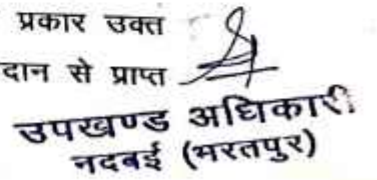 प्रकार उक्त
दान से प्राप्त
उपखण्ड अधिकारी
नदबई (भरतपुर)